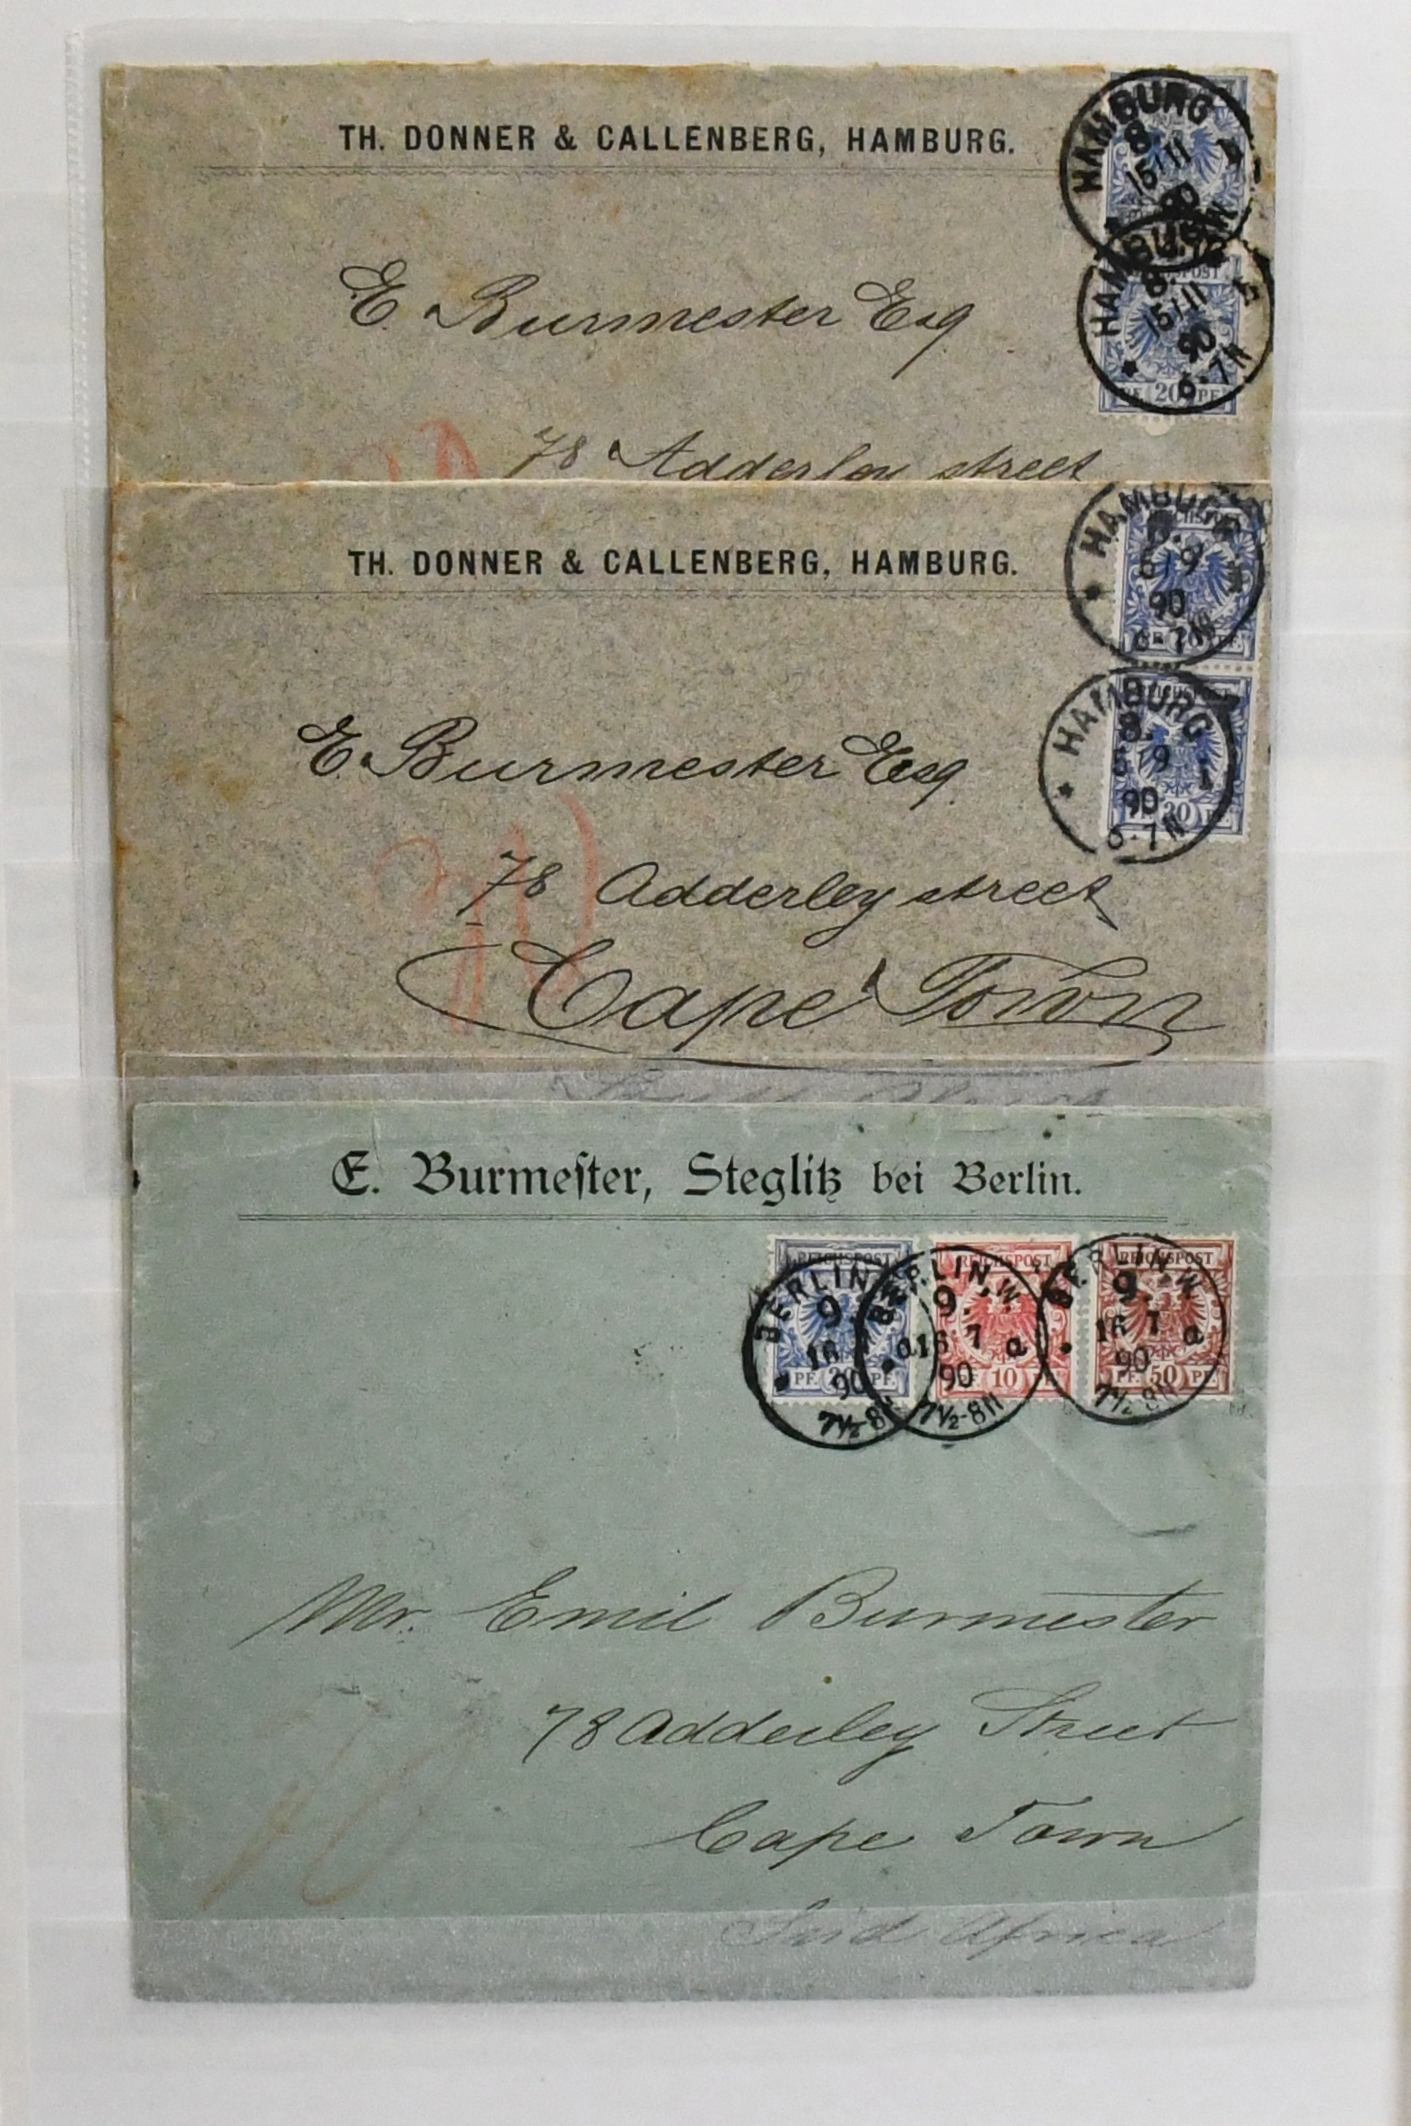 TH. DONNER & CALLENBERG, HAMBURG.
HAMBURG
8.
15/11
90
HAMBURG
8.
15/11
90
6-7N
20 PF.
E. Burmester Esq
78 Adderley street
TH. DONNER & CALLENBERG, HAMBURG.
HAMBURG
8.
5/9
90
6-7N
REICHSPOST
HAMBURG
8.
5/9
90
6-7N
20 PF.
E. Burmester Esq.
78 Adderley street
Cape Town
E. Burmeſter, Steglitz bei Berlin.
REICHSPOST REICHSPOST REICHSPOST
BERLIN W BERLIN W BERLIN W
9. 9. 9.
16 16 7 a 16 7 a
90 90 90
PF. 20 PF. PF. 10 PF. 50 PF.
7½-8N 7½-8N 7½-8N
Mr. Emil Burmester
78 Adderley Street
Cape Town
Süd Africa